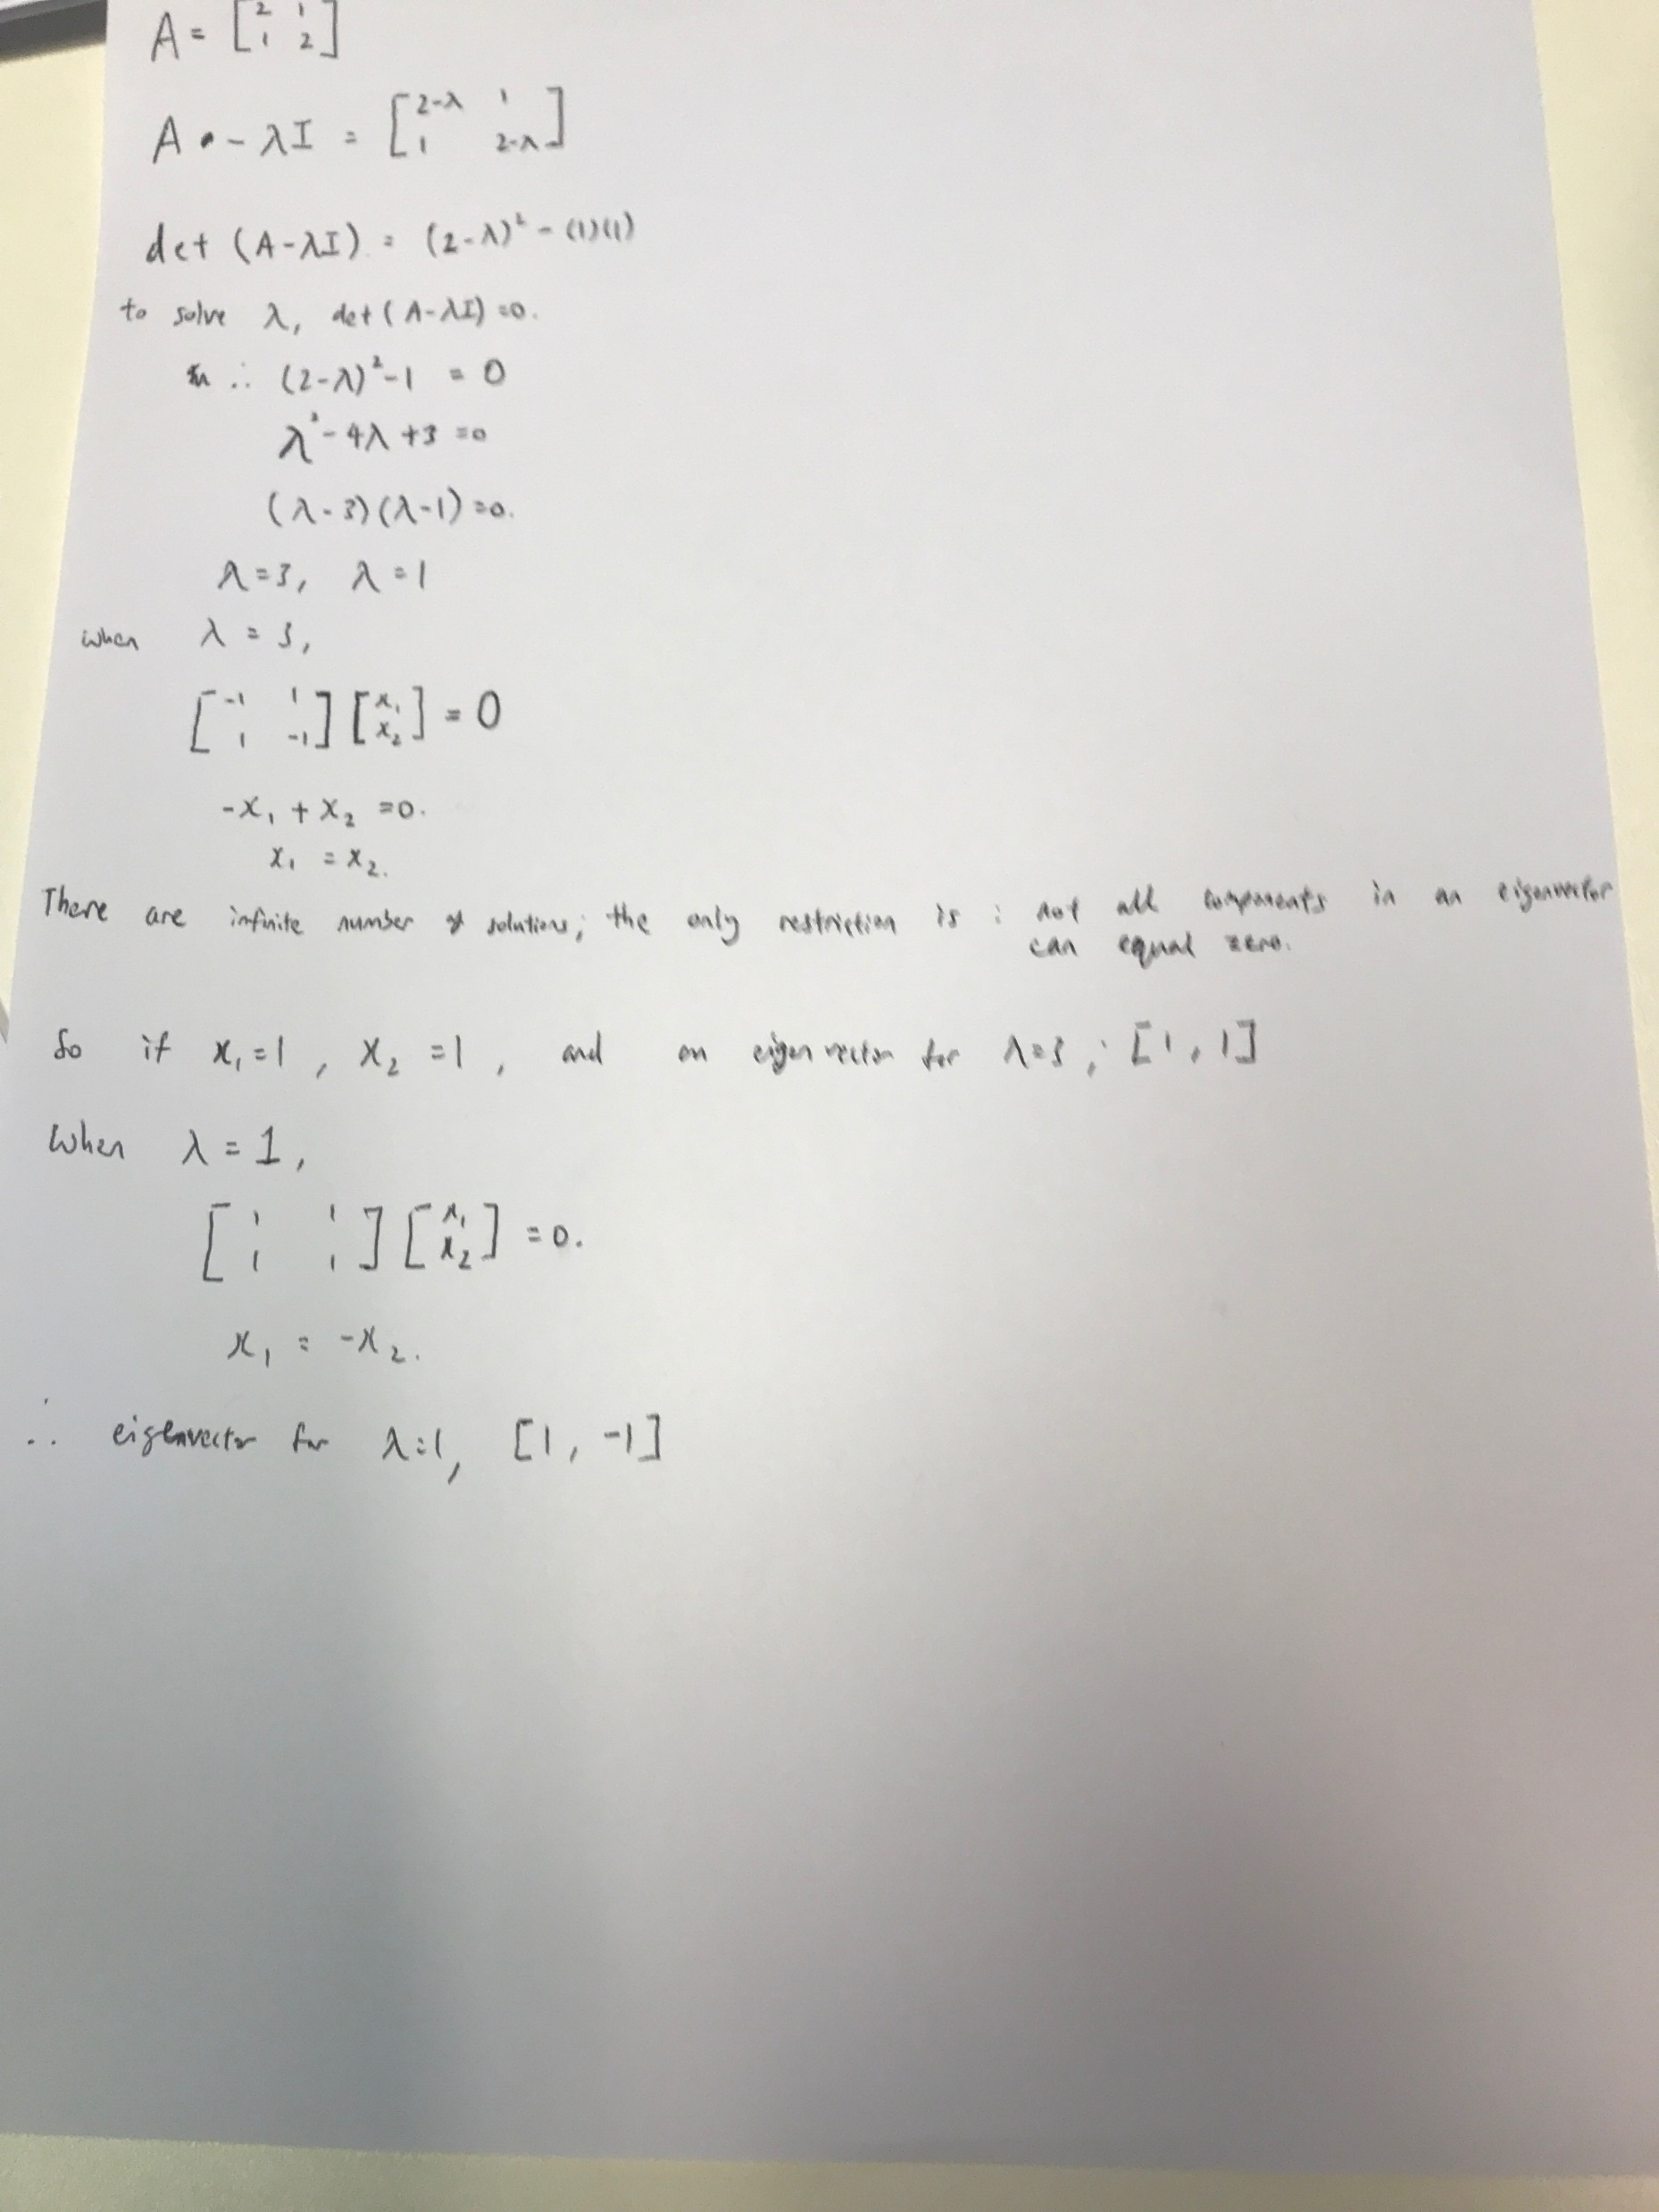 A = [2 1
1 2]
A - λI = [2-λ 1
1 2-λ]
det (A-λI) = (2-λ)² - (1)(1)
to solve λ, det (A-λI) = 0.
∴ (2-λ)² - 1 = 0
λ² - 4λ + 3 = 0
(λ-3)(λ-1) = 0.
λ = 3, λ = 1
when λ = 3,
[-1 1
1 -1] [x₁
x₂] = 0
-x₁ + x₂ = 0.
x₁ = x₂.
There are infinite number of solutions; the only restriction is : not all components in an eigenvector
can equal zero.
So if x₁ = 1, x₂ = 1, and an eigenvector for λ=3, : [1, 1]
When λ = 1,
[1 1
1 1] [x₁
x₂] = 0.
x₁ = -x₂.
∴ eigenvector for λ=1, [1, -1]